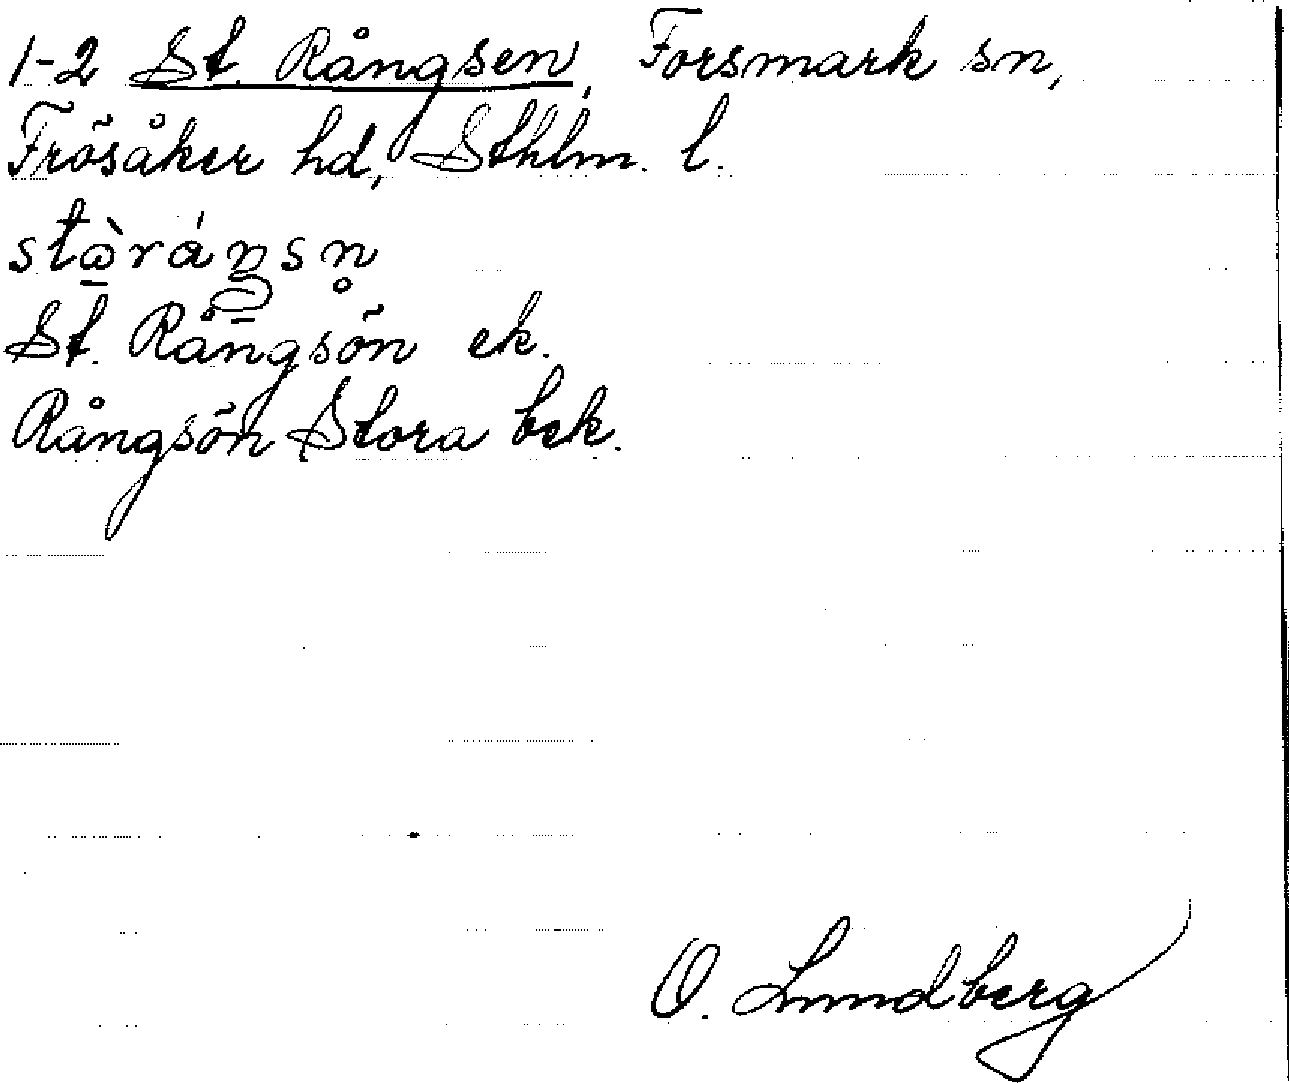 1-2 St. Rångsen, Forsmark sn,
Frösåker hd, Sthlm. l.
St. Rångsön ek.
Rångsön Stora bek.
O. Lundberg